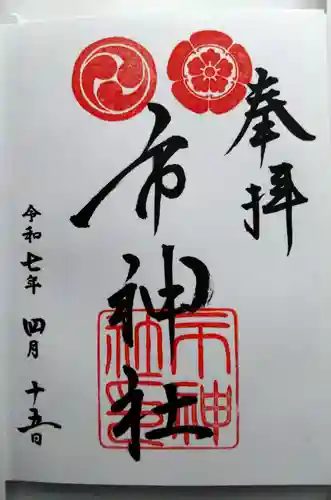 奉拝
市神社
市神社印
令和七年 四月 十五日